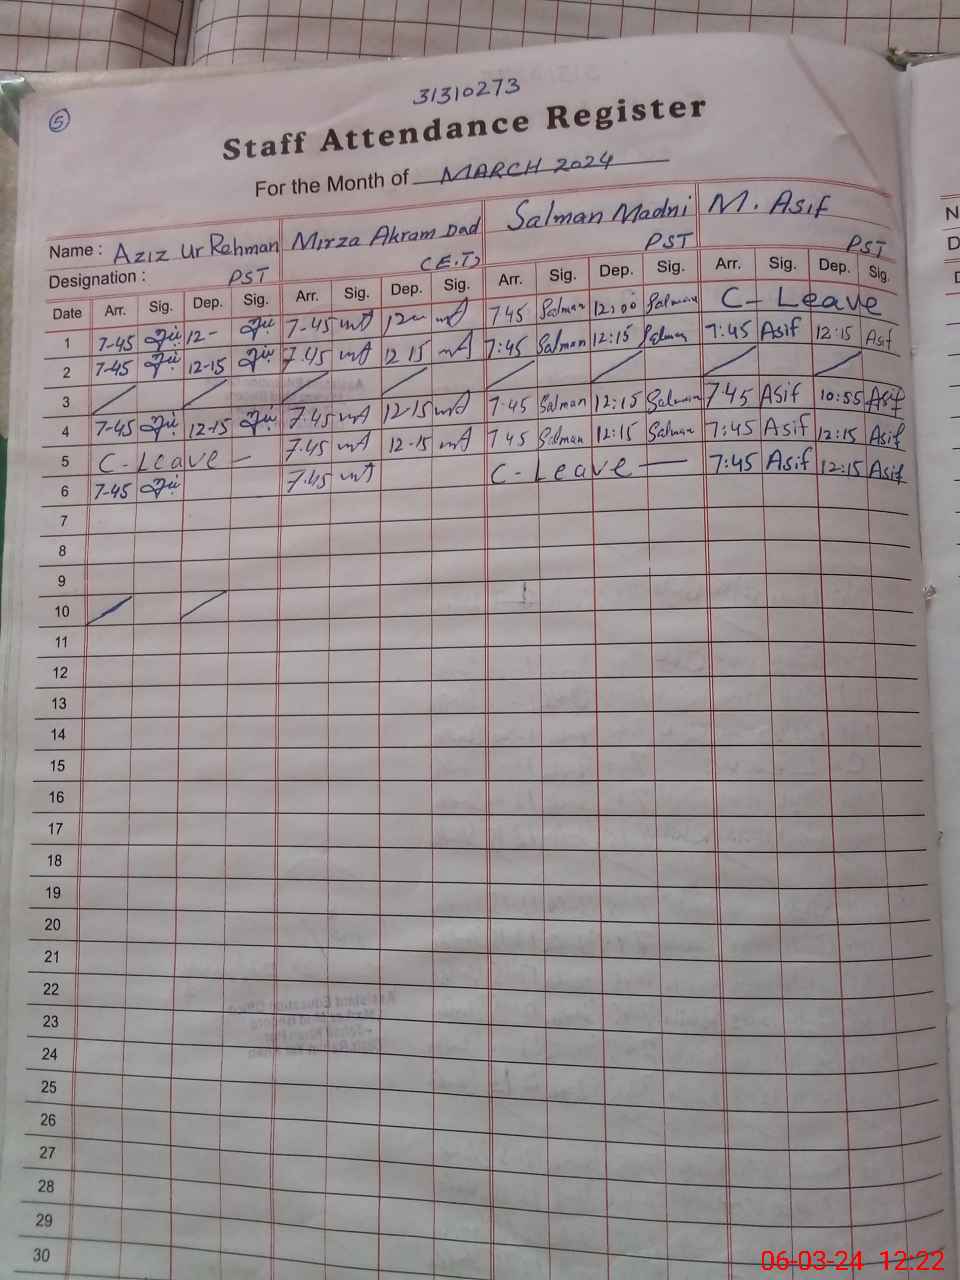 31310273
5
Staff Attendance Register
For the Month of MARCH 2024
Name : Aziz Ur Rehman Mirza Akram Dad Salman Madni M. Asif
Designation : PST (E.T) PST PST
Date Arr. Sig. Dep. Sig. Arr. Sig. Dep. Sig. Arr. Sig. Dep. Sig. Arr. Sig. Dep. Sig.
1 7-45 12- 7-45 12- 7 45 Salman 12:00 Salman C-Leave
2 7-45 12-15 7.45 12 15 7:45 Salman 12:15 Salman 7:45 Asif 12:15 Asif
3
4 7-45 12-15 7.45 12-15 7-45 Salman 12:15 Salman 7:45 Asif 10:55 Asif
5 C-Leave - 7.45 12-15 7 45 Salman 12:15 Salman 7:45 Asif 12:15 Asif
6 7-45 7.45 C-Leave — 7:45 Asif 12:15 Asif
7
8
9
10
11
12
13
14
15
16
17
18
19
20
21
22
23
24
25
26
27
28
29
30
06-03-24 12:22